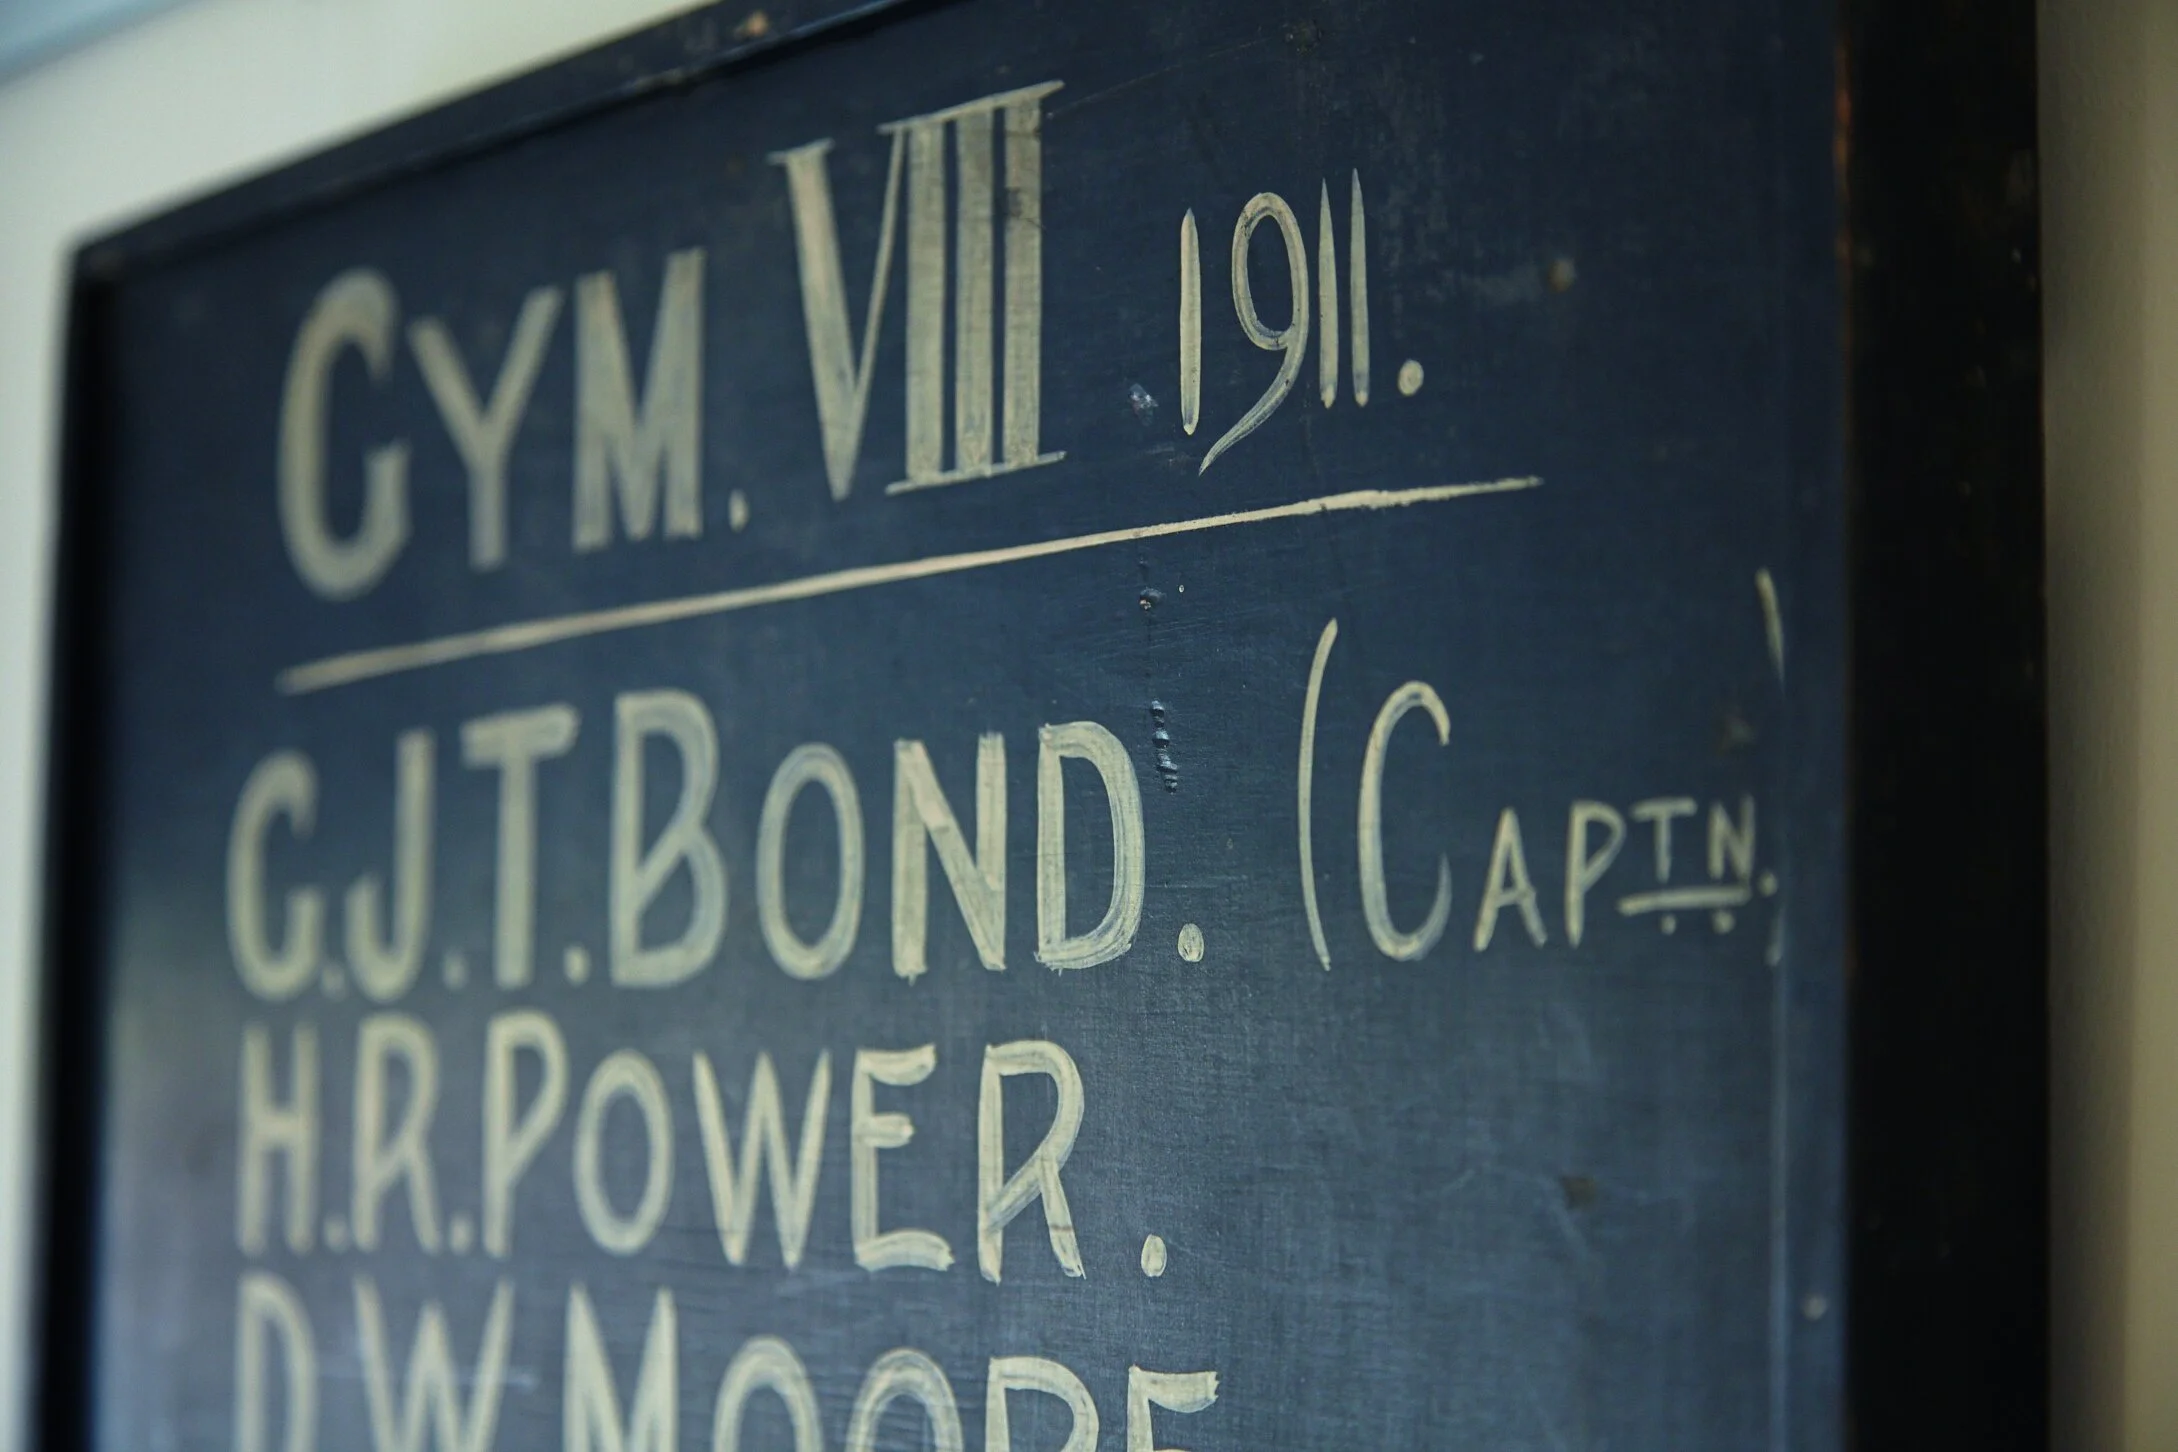 GYM. VIII 1911.
G.J.T. BOND. (CAPTN.)
H.R. POWER.
D.W. MOORE